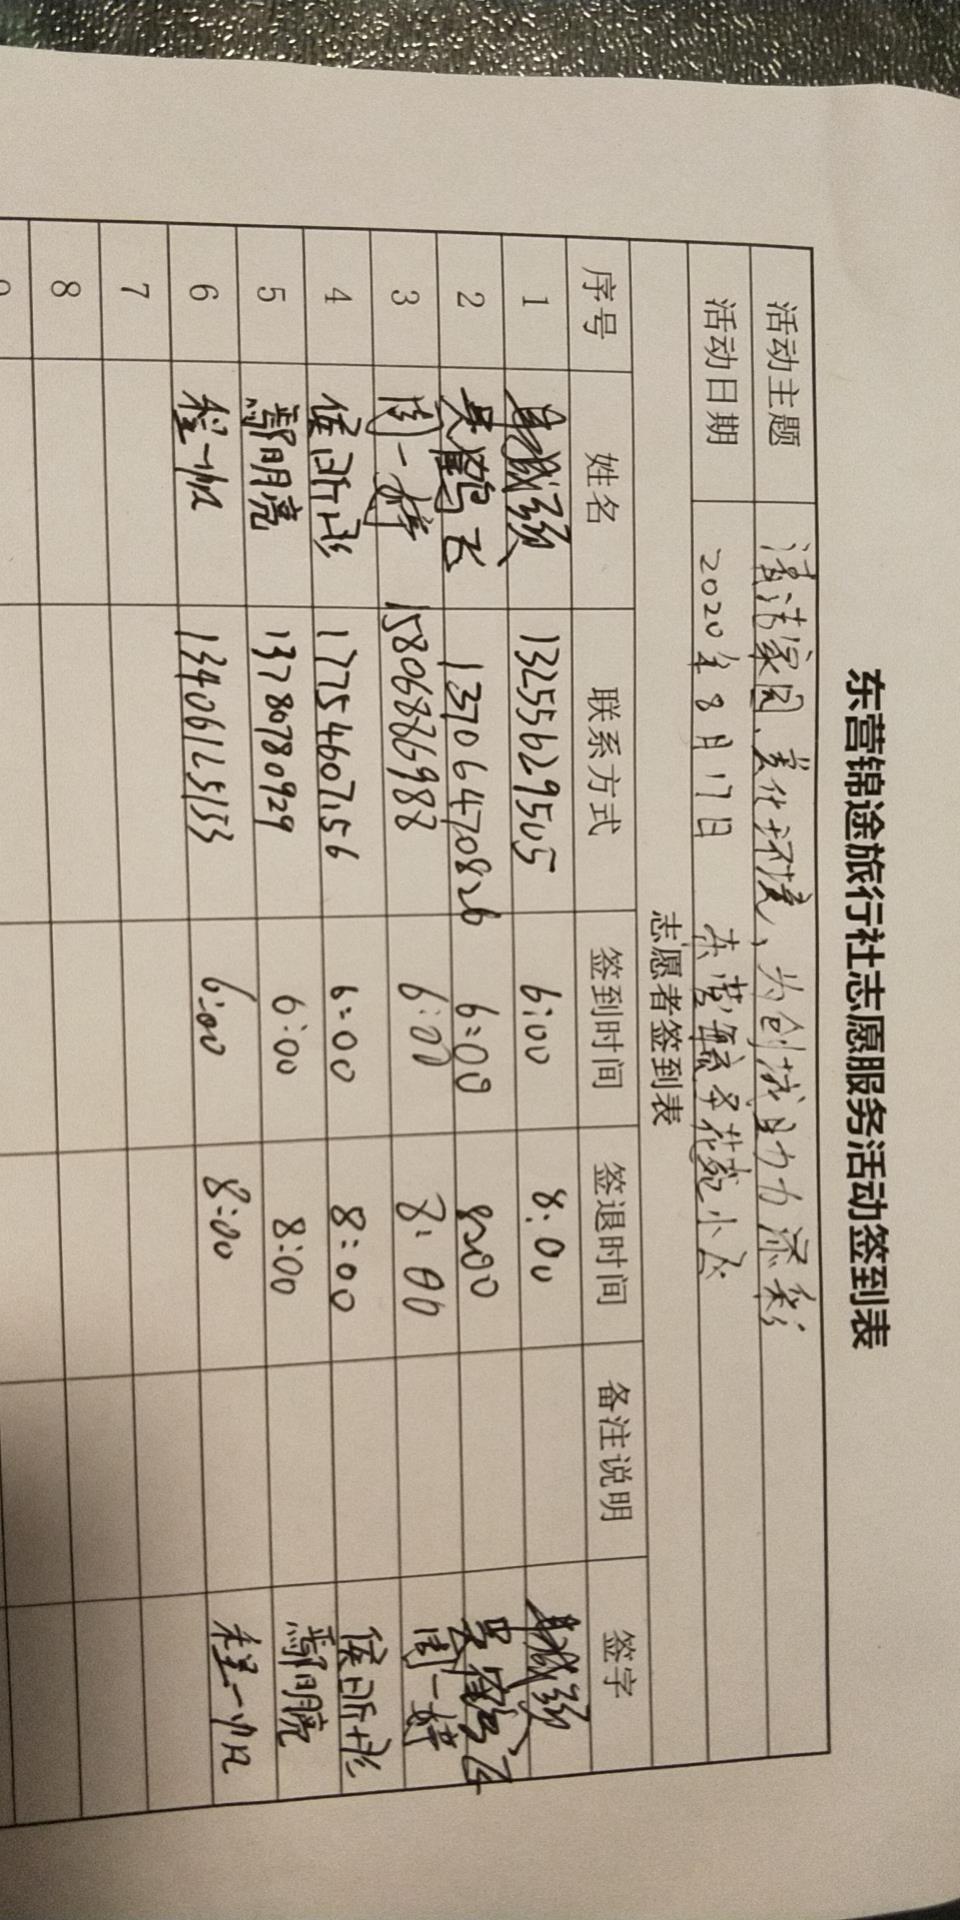 东营锦途旅行社志愿服务活动签到表
活动主题 清洁家园、美化环境、为创城助力添彩
活动日期 2020年8月17日 东营 花苑小区
志愿者签到表
序号 姓名 联系方式 签到时间 签退时间 备注说明 签字
1 13255629505 6:00 8:00
2 吴鹤飞 13706470826 6:00 8:00 吴鹤飞
3 周一婷 15806886988 6:00 8:00 周一婷
4 侯昕彤 17754607156 6:00 8:00 侯昕彤
5 鄢明亮 13780780929 6:00 8:00 鄢明亮
6 程一帆 13406125133 6:00 8:00 程一帆
7
8